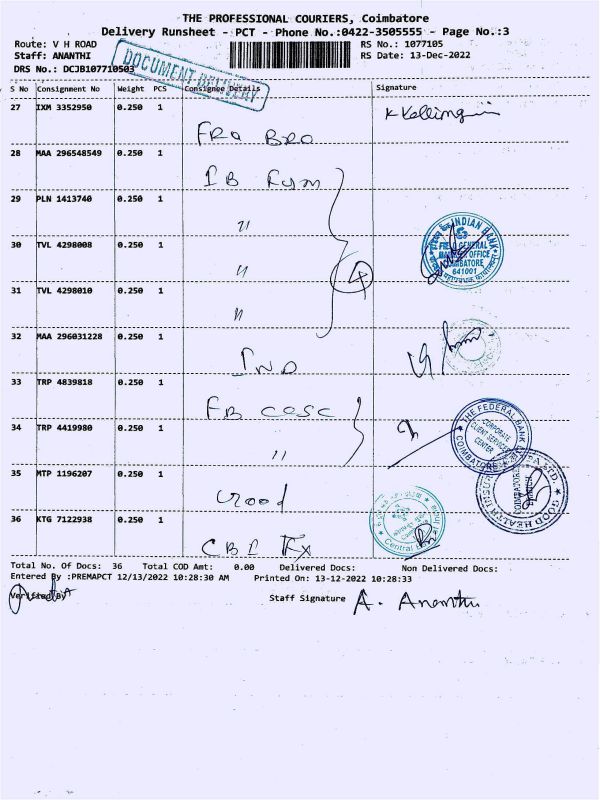 THE PROFESSIONAL COURIERS, Coimbatore
Delivery Runsheet - PCT - Phone No.:0422-3505555 - Page No.:3
Route: V H ROAD RS No.: 1077105
Staff: ANANTHI RS Date: 13-Dec-2022
DRS No.: DCJB107710503
DOCUMENT DELIVERY
S No Consignment No Weight PCS Consignee Details Signature
27 IXM 3352950 0.250 1
FRA BRO
28 MAA 296548549 0.250 1
IB Fgm
29 PLN 1413740 0.250 1
"
30 TVL 4298008 0.250 1
"
4
INDIAN BANK
COIMBATORE
641001
31 TVL 4298010 0.250 1
"
32 MAA 296031228 0.250 1
IND
33 TRP 4839818 0.250 1
FB CCSC
34 TRP 4419980 0.250 1
"
THE FEDERAL BANK
CORPORATE
CLIENT SERVICES
CENTER
COIMBATORE
35 MTP 1196207 0.250 1
Good
GOOD HEALTH
COIMBATORE
36 KTG 7122938 0.250 1
CBI Fx
Central
Total No. Of Docs: 36 Total COD Amt: 0.00 Delivered Docs: Non Delivered Docs:
Entered By :PREMAPCT 12/13/2022 10:28:30 AM Printed On: 13-12-2022 10:28:33
Verified By Staff Signature A. Ananthi